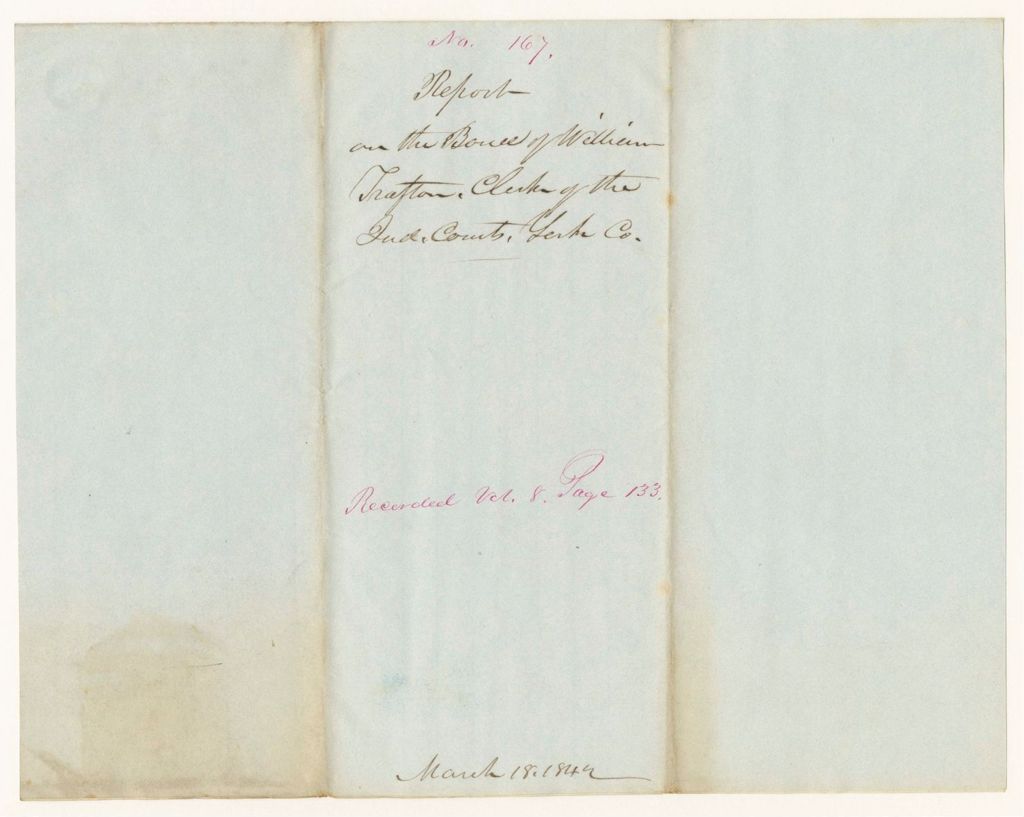 No. 167.
Report
on the Bond of William
Trafton, Clerk of the
Jud. Courts, York Co.
Recorded Vol. 8. Page 133.
March 18. 1842